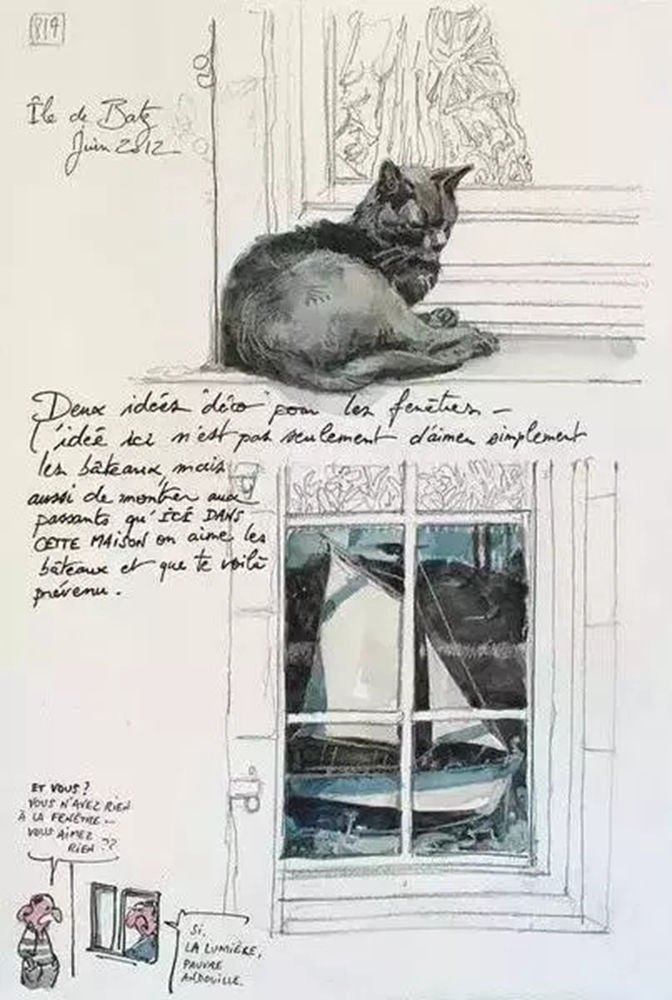 819
Île de Batz
Juin 2012
Deux idées "déco" pour les fenêtres -
L'idée ici n'est pas seulement d'aimer simplement
les bâteaux, mais
aussi de montrer aux
passants qu'ICI DANS
CETTE MAISON on aime les
bâteaux et que te voilà
prévenu.
ET VOUS ?
VOUS N'AVEZ RIEN
À LA FENÊTRE -
VOUS AIMEZ
RIEN ??
SI,
LA LUMIÈRE,
PAUVRE
ANDOUILLE.